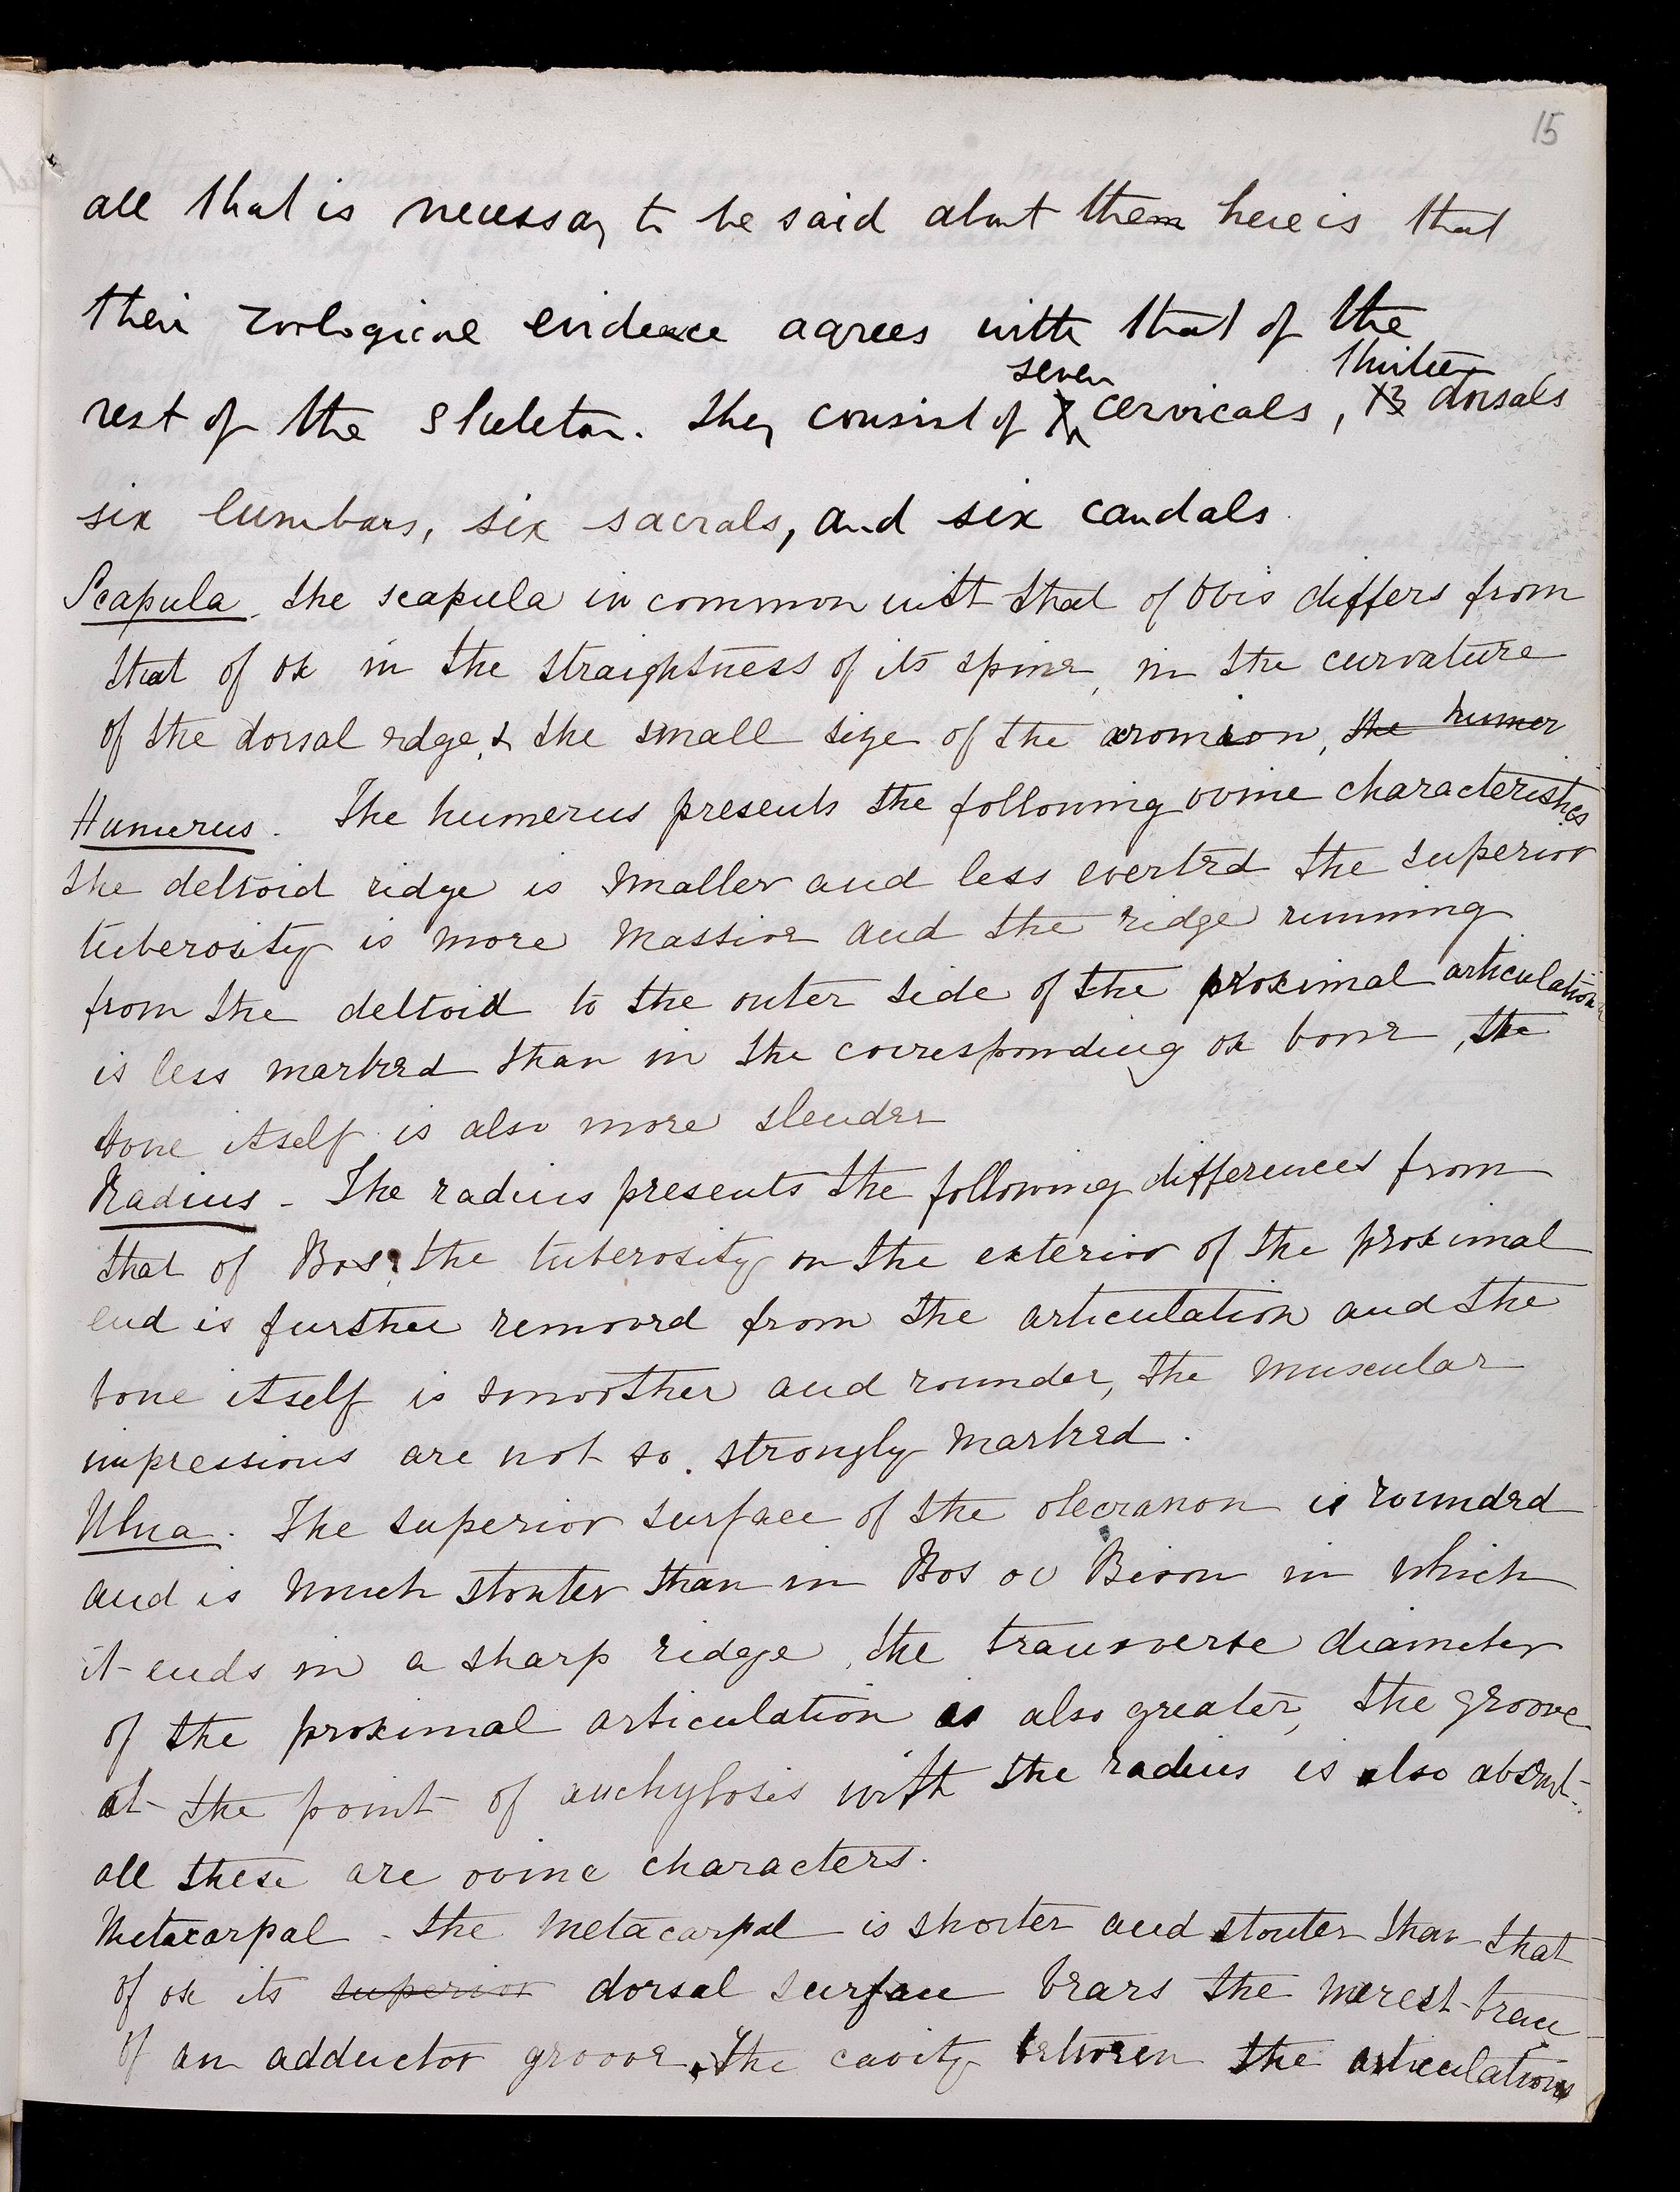 15
all that is necessary to be said about them here is that
their zoological evidence agrees with that of the
seven thirteen
rest of the skeleton. they consist of 7 cervicals, 13 dorsals
six lumbars, six sacrals, and six caudals
Scapula. the scapula in common with that of Ovis differs from
that of ox in the straightness of its spine, in the curvature
of the dorsal edge, & the small size of the acromion, the humer
Humerus. The humerus presents the following ovine characteristics
the deltoid ridge is smaller and less everted the superior
tuberosity is more massive and the ridge running
from the deltoid to the outer side of the proximal articulation
is less marked than in the corresponding ox bone, the
bone itself is also more slender
Radius - The radius presents the following differences from
that of Bos, the tuberosity on the exterior of the proximal
end is further removed from the articulation and the
bone itself is smoother and rounder, the muscular
impressions are not so strongly marked.
Ulna. The superior surface of the olecranon is rounded
and is much stouter than in Bos or Bison in which
it ends in a sharp ridge, the transverse diameter
of the proximal articulation is also greater, the groove
at the point of anchylosis with the radius is also absent.
all these are ovine characters.
Metacarpal - the metacarpal is shorter and stouter than that
of ox its superior dorsal surface bears the merest trace
of an adductor groove, The cavity between the articulations